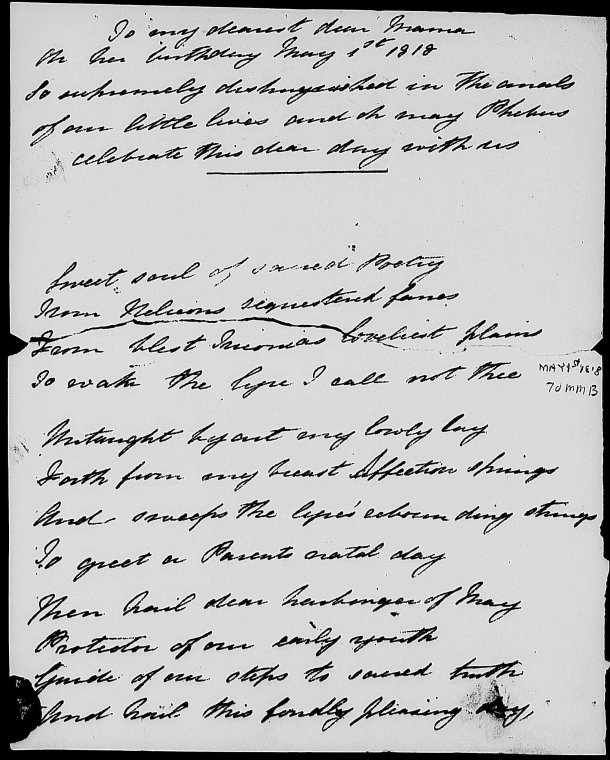 To my dearest dear Mama
On her birthday May 1st 1818
So supremely distinguished in the anals
of our little lives and oh may Phebus
celebrate this dear day with us
Sweet soul of sacred Poetry
From Helicons sequesterd fanes
From blest loveliest plains
To wake the lyre I call not thee
MAY 1st 1818
TO MMB
Untaught by art my lowly lay
Forth from my breast Affection springs
And sweeps the lyre's rebounding strings
To greet a Parents natal day
Then hail dear harbinger of May
Protector of our early youth
Guide of our steps to sacred truth
And hail this fondly pleasing day,